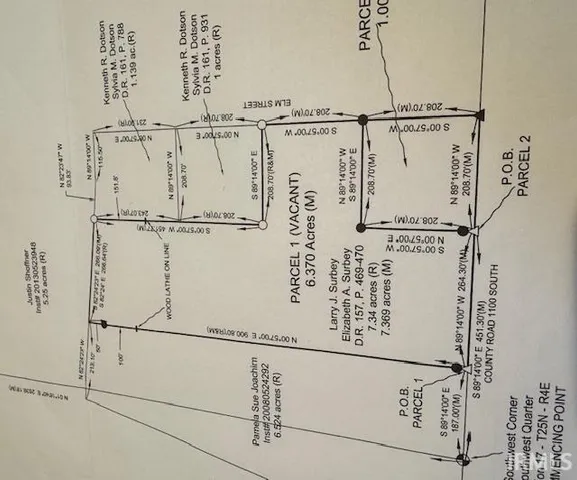 Kenneth R. Dotson
Sylvia M. Dotson
D.R. 161, P. 788
1.139 ac.(R)
Kenneth R. Dotson
Sylvia M. Dotson
D.R. 161, P. 931
1 acres (R)
PARCE
1.00
ELM STREET
N 82°23'47" W
93.83'
N 89°14'00" W
115.50'
231.00'(R)
N 00°57'00" E
208.70'(R)
N 00°57'00" E
208.70'(M)
S 00°57'00" W
208.70'(M)
S 00°57'00" W
151.8'
243.07'(R)
N 89°14'00" W
208.70'
208.70'(R)
S 89°14'00" E
208.70'(R&M)
N 89°14'00" W
208.70'(M)
N 89°14'00" W
208.70'(M)
208.70'(M)
N 00°57'00" E
P.O.B.
PARCEL 2
Justin Shoffner
Inst# 20130523948
5.25 acres (R)
WOOD LATHE ON LINE
PARCEL 1 (VACANT)
6.370 Acres (M)
Larry J. Surbey
Elizabeth A. Surbey
D.R. 157, P. 469-470
7.34 acres (R)
7.369 acres (M)
N 89°14'00" W 264.30'(M)
S 89°14'00" E 451.30'(M)
COUNTY ROAD 1100 SOUTH
N 00°57'00" E 900.80'(R&M)
50'
100'
213.10'
Pamela Sue Joachim
Inst# 20080524292
6.524 acres (R)
P.O.B.
PARCEL 1
S 89°14'00" E
187.00'(M)
Southwest Corner
outhwest Quarter
- T25N - R4E
MMENCING POINT